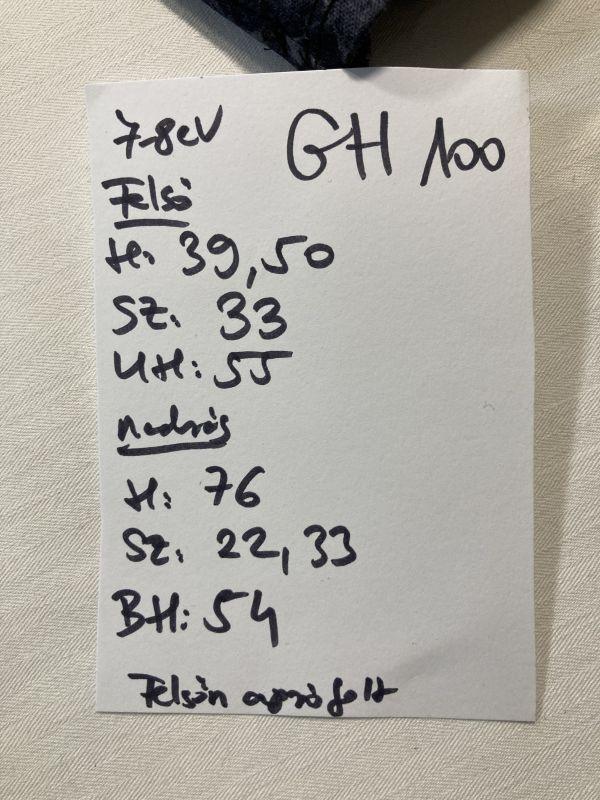 7-8év GH 100
Felső
H: 39,50
SZ: 33
UH: 55
nadrág
H: 76
SZ: 22,33
BH: 54
Felsőn apró folt